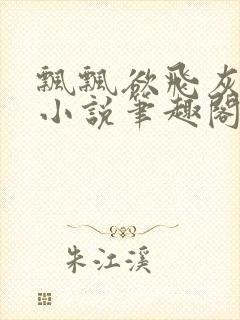 飄飄欲飛灰
小說筆趣閣
朱江溪